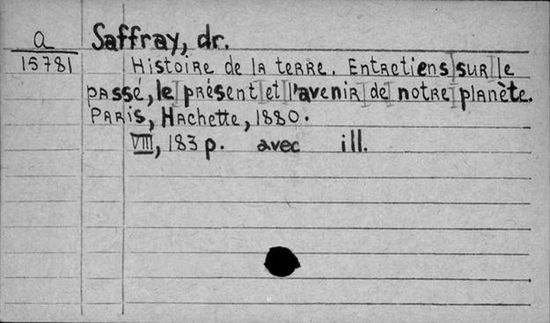 a
15781
Saffray, dr.
Histoire de la terre. Entretiens sur le
passé, le présent et l'avenir de notre planète.
Paris, Hachette, 1880.
VIII, 183 p. avec ill.